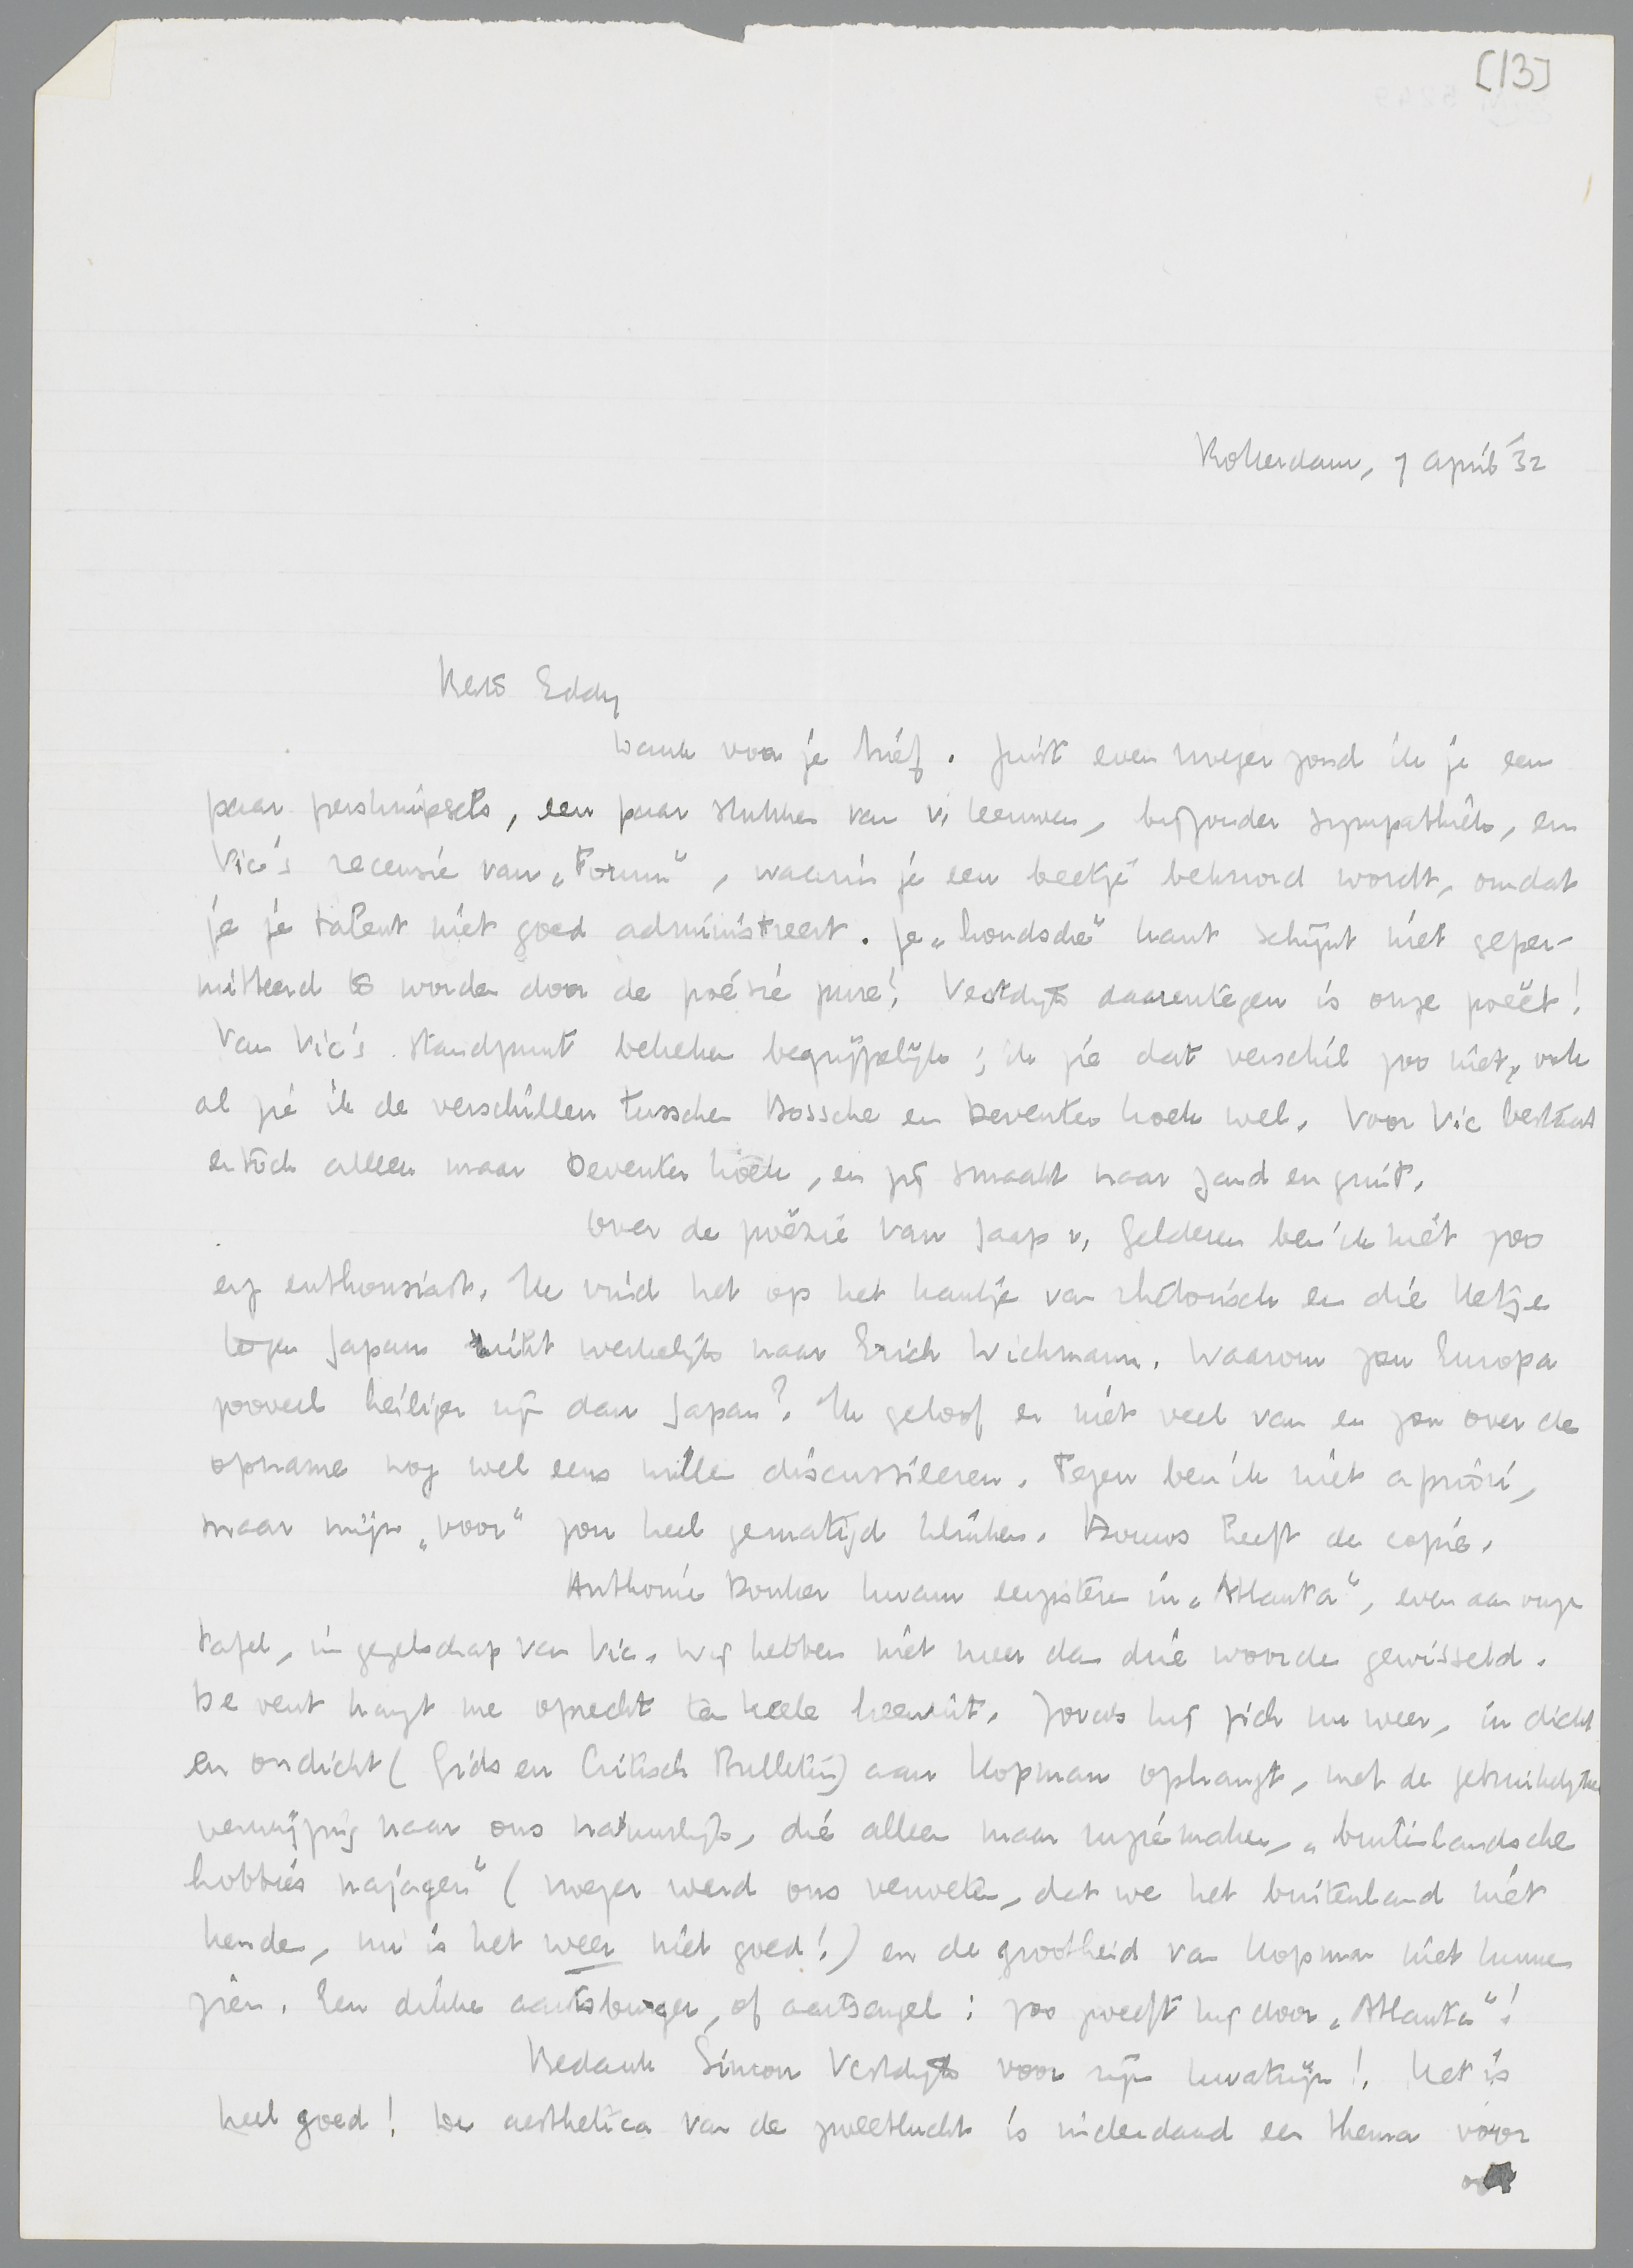 [13]
Rotterdam, 7 April '32
Beste Eddy
Dank voor je brief. Juist even vroeger zond ik je een
paar persknipsels, een paar stukken van v. Leeuwen, bijzonder sympathiek, en
Vic's recensie van „Forum", waarin je een beetje beknord wordt, omdat
je je talent niet goed administreert. Je „hondsche" kant schijnt niet geper-
mitteerd te worden door de poésie pure! Vestdijk daarentegen is onze poëet!
Van Vic's standpunt bekeken begrijpelijk; ik zie dat verschil zoo niet, ook
al zie ik de verschillen tusschen Bossche en Deventer koek wel. Voor Vic bestaat
er toch alleen maar Deventer koek, en jij smaakt naar zand en gruit.
Over de poëzie van Jaap v. Gelderen ben ik niet zoo
erg enthousiast. Ik vind het op het kantje van rhetorisch en die ketze
tegen Japan riekt werkelijk naar Erich Wichmann. Waarom zou Europa
zooveel heiliger zijn dan Japan? Ik geloof er niet veel van en zou over de
opname nog wel eens willen discussieeren. Tegen ben ik niet a priori,
maar mijn „voor" zou heel gematigd klinken. Bouws heeft de copie.
Anthonie Donker kwam eergisteren in „Atlanta", even aan onze
tafel, in gezelschap van Vic. Wij hebben niet meer dan drie woorden gewisseld.
De vent hangt me oprecht de keele heenuit. Zooals hij zich nu weer, in dicht
en ondicht (Gids en Critisch Bulletin) aan Kopman ophangt, met de gebruikelijke
verwijzing naar ons natuurlijk, die alleen maar ruzie maken, „buitenlandsche
hobbies najagen" (vroeger werd ons verweten, dat we het buitenland niet
kenden, nu is het weer niet goed!) en de grootheid van Kopman niet kunnen
zien. Een dikke aartsburger, of aartsengel: zoo zweeft hij door „Atlanta"!
Bedank Simon Vestdijk voor zijn kwatrijn! Het is
heel goed! De aesthetica van de zweetlucht is inderdaad een thema voor